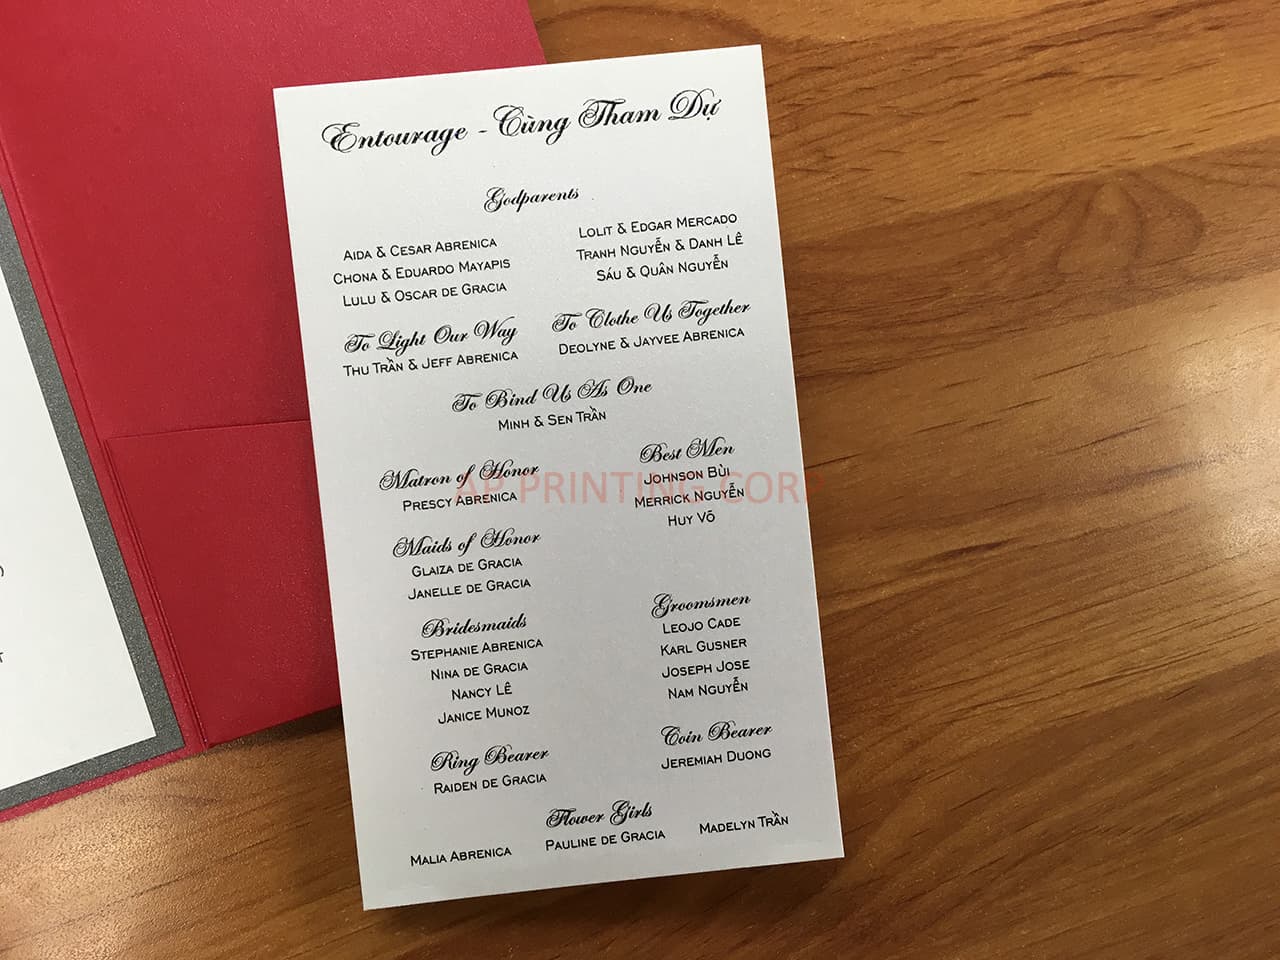 Entourage - Cùng Tham Dự
Godparents
Aida & Cesar Abrenica
Chona & Eduardo Mayapis
Lulu & Oscar de Gracia
Lolit & Edgar Mercado
Tranh Nguyễn & Danh Lê
Sáu & Quân Nguyễn
To Light Our Way
Thu Trần & Jeff Abrenica
To Clothe Us Together
Deolyne & Jayvee Abrenica
To Bind Us As One
Minh & Sen Trần
Matron of Honor
Prescy Abrenica
Best Men
Johnson Bùi
Merrick Nguyễn
Huy Võ
AP PRINTING CORP
Maids of Honor
Glaiza de Gracia
Janelle de Gracia
Bridesmaids
Stephanie Abrenica
Nina de Gracia
Nancy Lê
Janice Munoz
Groomsmen
Leojo Cade
Karl Gusner
Joseph Jose
Nam Nguyễn
Ring Bearer
Raiden de Gracia
Coin Bearer
Jeremiah Duong
Flower Girls
Malia Abrenica
Pauline de Gracia
Madelyn Trần